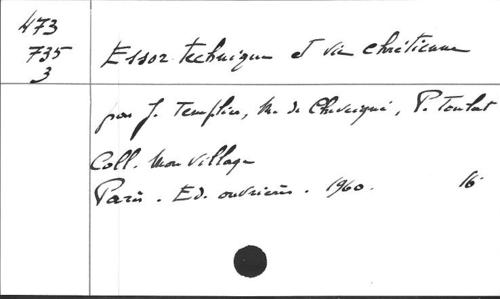 473
735
3
Essor technique et vie chrétienne
par J. Templier, M. de Chevigné, P. Toulat
Coll. Mon village
Paris. Ed. ouvrières. 1960. 16